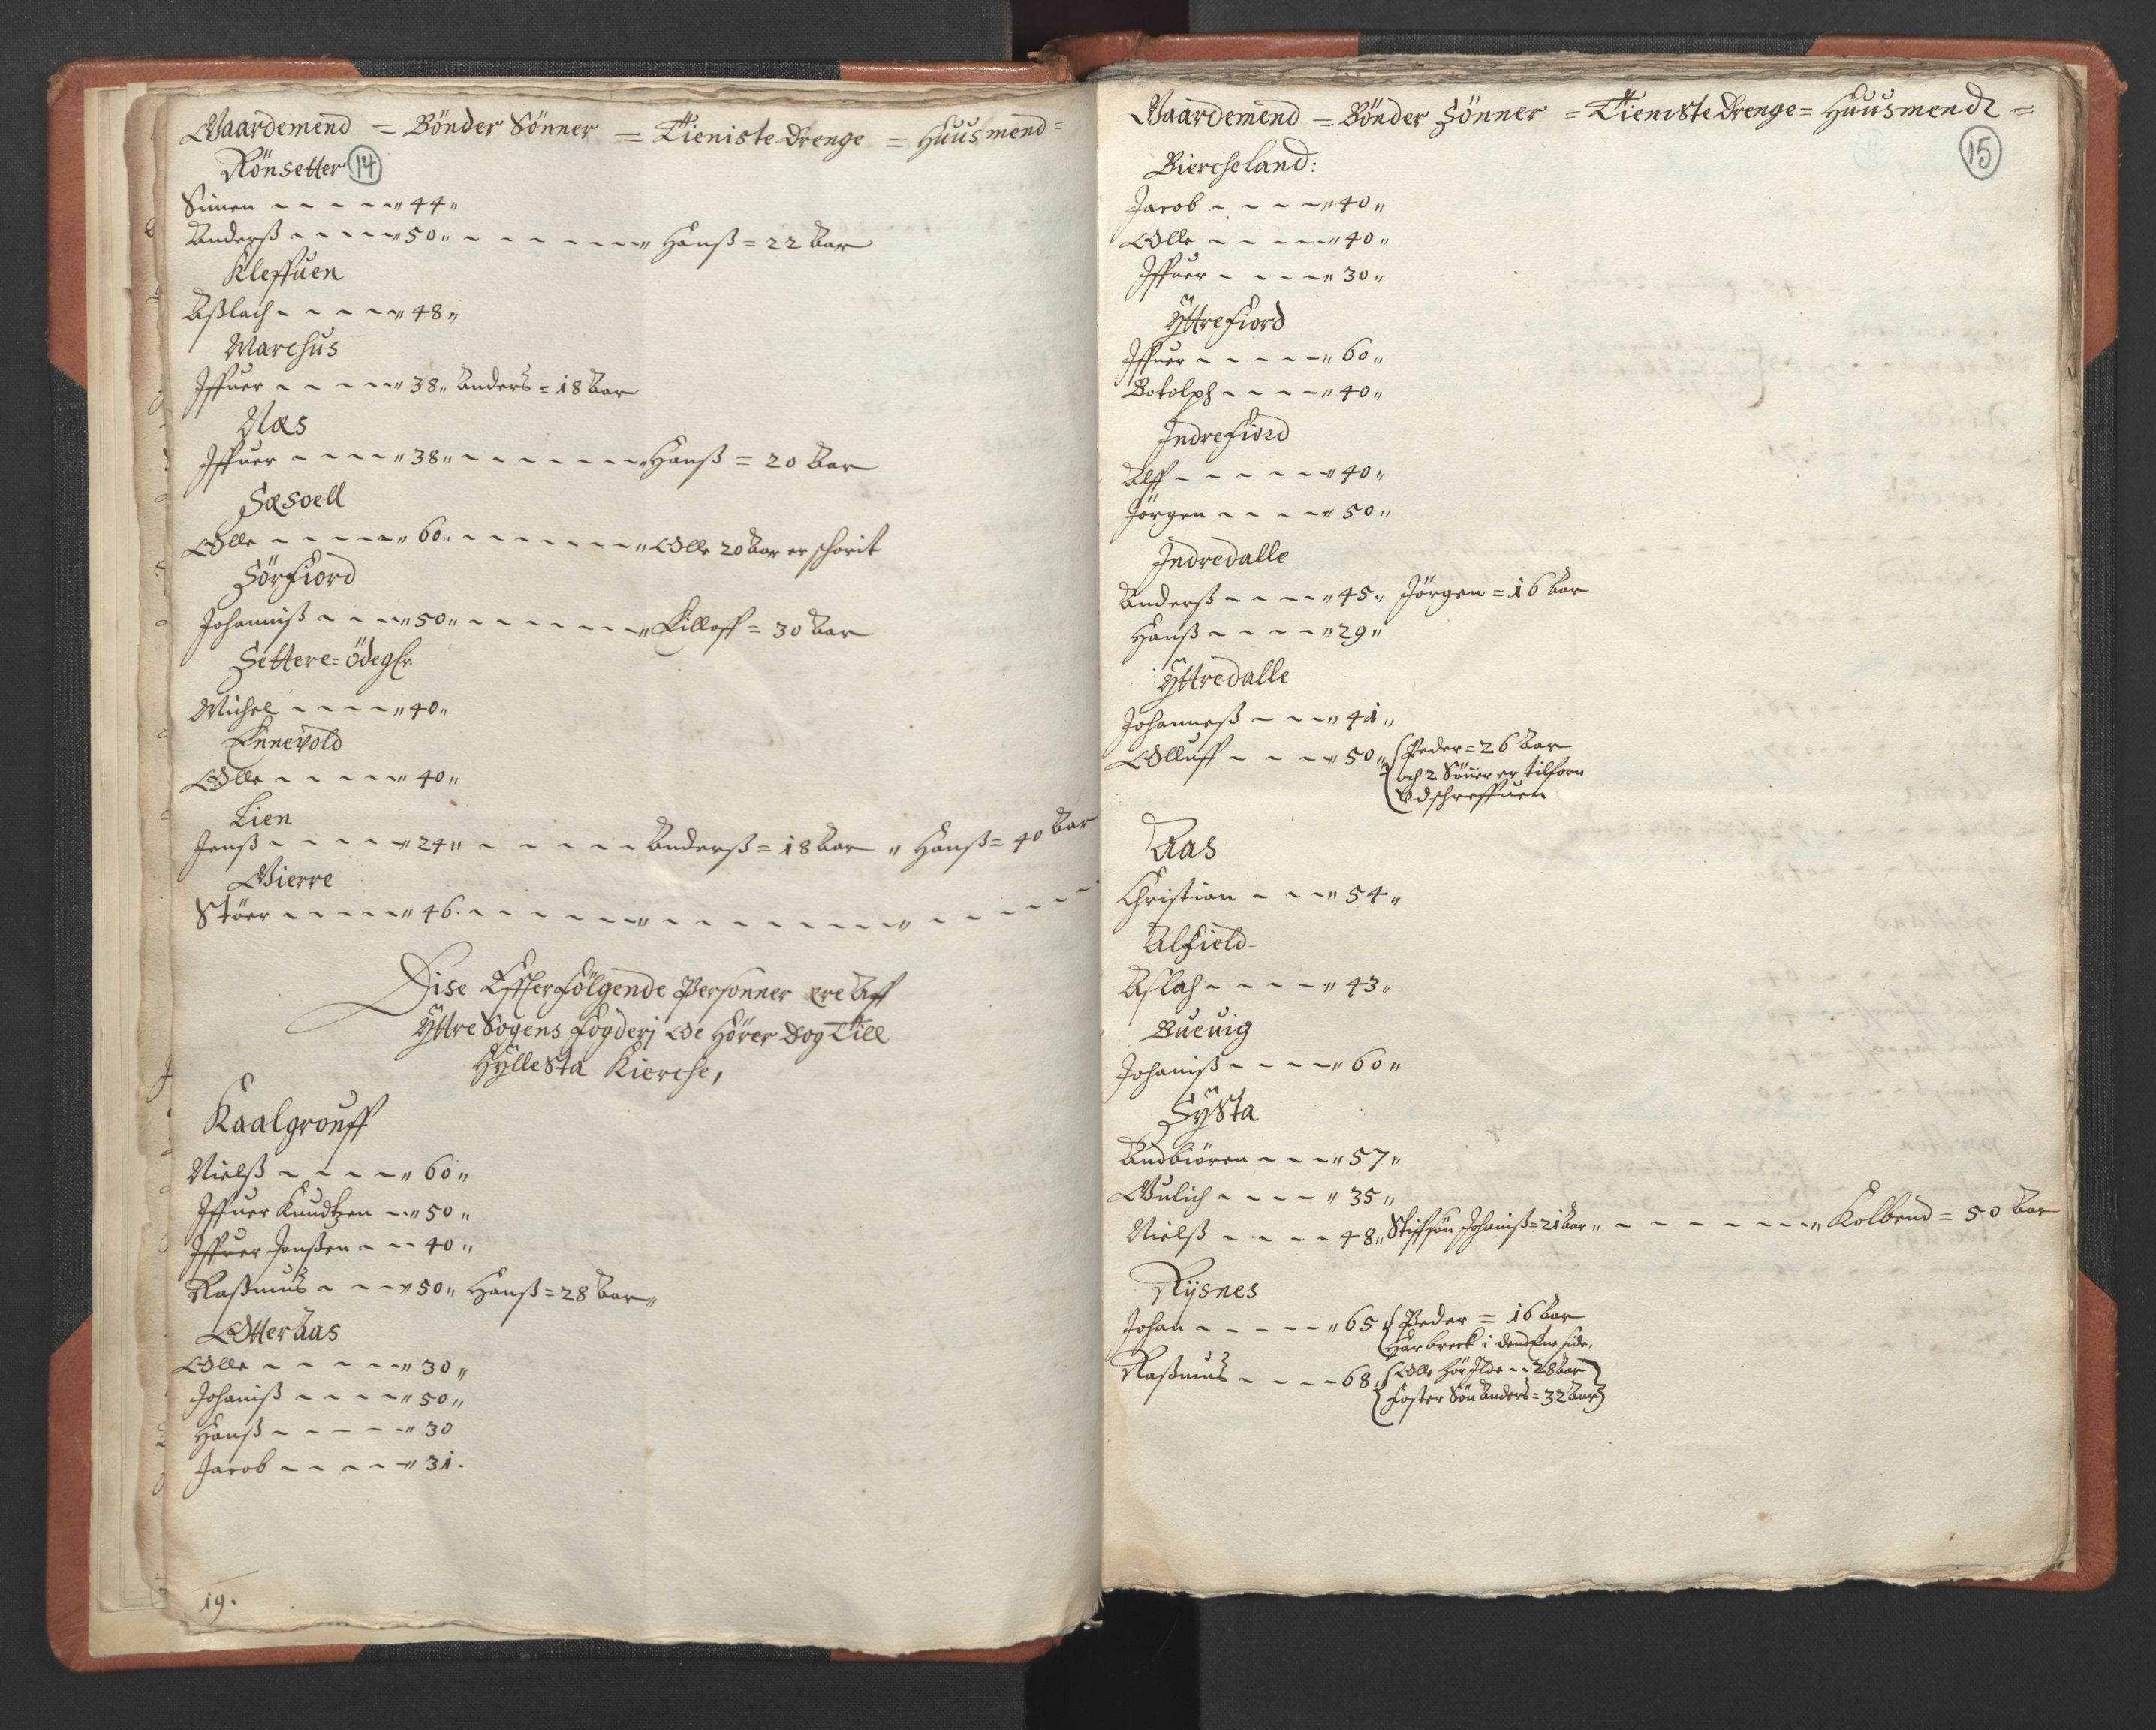 Gaardemend = Bönder Sönner = Tieniste Drenge = Huusmend =
Rönsetter 14
Simen - - - - - 44 "
Anderß - - - - " 50 " - - - - - - - " Hanß = 22 Aar
Kleffuen
Aßlach - - - - - " 48 "
Marchus
Iffuer - - - - - " 38 " Anders = 18 Aar
Næs
Iffuer - - - - " 38 " - - - - - - - " Hanß = 20 Aar
Sæsoell
Olle - - - - - " 60 " - - - - - - - " Olle 20 Aar er schorit
Sörfiord
Johanniß - - - " 50 " - - - - - - - " Eilloff = 30 Aar
Settere = ödegl.
Michel - - - - " 40 "
Ennevold
Olle - - - - - " 40 "
Lien
Jenß - - - - - " 24 " - - - - - - Anderß = 18 Aar " Hanß = 40 Aar
Vierre
Stöer - - - - - " 46 - - - - - - - " - - - - - - - " - - - - - -
Dise Effterfölgende Personner ere Aff
Yttre Sogens Fogderj Oc Hörer Dog Till
Hyllesta Kierche,
Kaalgrouff
Nielß - - - - - " 60 "
Iffuer Knudtzen - " 50 "
Iffuer Jenßen - - - 40 "
Raßmus - - - - " 50 " Hanß = 28 Aar "
Otteraas
Olle - - - - - " 30 "
Johaniß - - - - " 50 "
Hanß - - - - - " 30
Jacob - - - - - " 31 .
19.
Gaardemend = Bönder Sönner = Tieniste Drenge = Huusmendt =
15
Biercheland :
Jacob - - - - - " 40 "
Olle - - - - - " 40 "
Iffuer - - - - " 30 "
Yttrefiord
Iffuer - - - - - " 60 "
Botolph - - - - " 40 "
Indrefiord
Alff - - - - - " 40 "
Jörgen - - - - " 50 "
Indredalle
Anderß - - - - " 45 " Jörgen = 16 Aar
Hanß - - - - " 29 "
Yttredalle
Johanneß - - - " 41 "
Olluff - - - - " 50 " Peder = 26 Aar
och 2 Söner er tilforn
Udschreffuen
Aas
Christian - - - " 54 "
Alfield
Aslach - - - - " 43 "
Bueuig
Johaniß - - - - " 60 "
Systa
Andbiören - - - " 57 "
Gulich - - - - " 35 "
Nielß - - - - 48 " Stiffsön Johaniß = 21 Aar " - - - - - - - " Kolbend = 50 Aar
Rysnes
Johan - - - - - " 65 " Peder = 16 Aar
Har breck i dend Ene side,
Raßmus - - - - 68 " Olle - - 28 Aar
Foster Sön Anders = 32 Aar